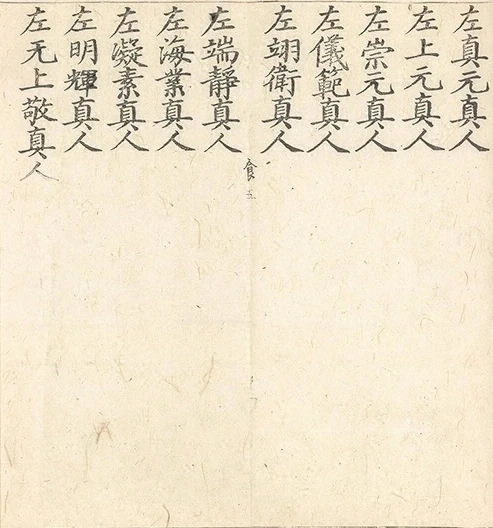 左真元真人
左上元真人
左崇元真人
左儀範真人
左翊衛真人
食五
左端靜真人
左海業真人
左凝素真人
左明輝真人
左无上敬真人